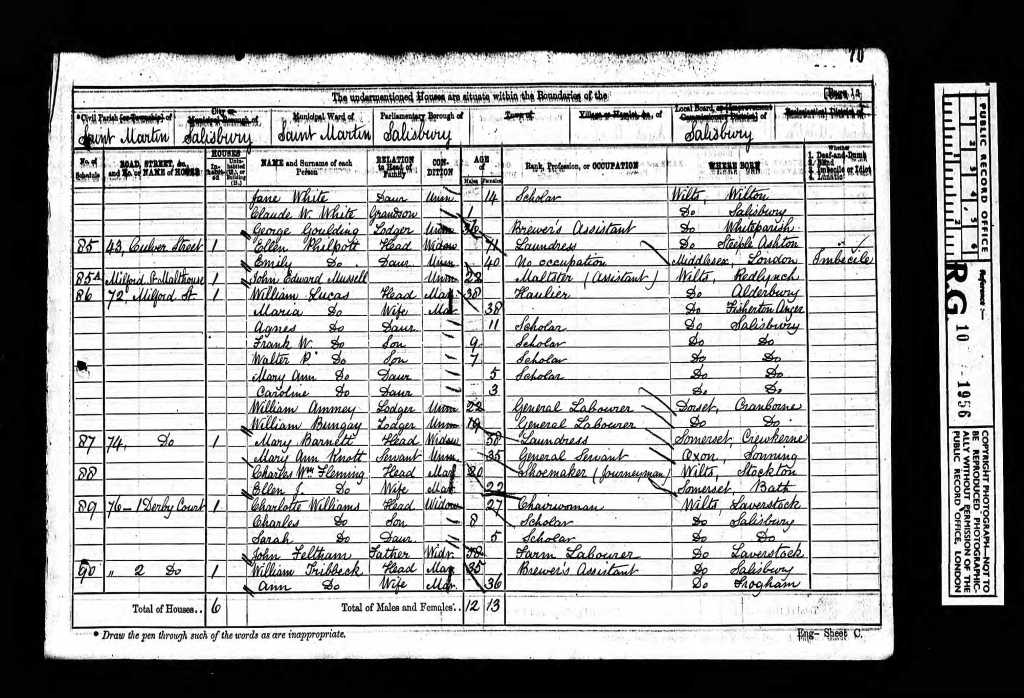 70
The undermentioned Houses are situate within the Boundaries of the
Page 12
*Civil Parish [or Township] of
City or Municipal Borough of
Municipal Ward of
Parliamentary Borough of
Town of
Village or Hamlet, &c., of
Local Board, or [Improvement Commissioners District] of
Ecclesiastical District of
Saint Martin Salisbury Saint Martin Salisbury Salisbury
No. of Schedule
ROAD, STREET, &c., and No. or NAME of HOUSE
HOUSES
Inhabited
Uninhabited (U.), or Building (B.)
NAME and Surname of each Person
RELATION to Head of Family
CONDITION
AGE of
Males Females
Rank, Profession, or OCCUPATION
WHERE BORN
Whether
1. Deaf-and-Dumb
2. Blind
3. Imbecile or Idiot
4. Lunatic
Jane White Daur Unm 14 Scholar Wilts, Wilton
Claude W. White Grandson 1 Do Salisbury
George Goulding Lodger Unm Brewer's Assistant Do Whiteparish
85 43, Culver Street 1 Ellen Philpott Head Widow 71 Laundress Do Steeple Ashton
Emily Do Daur Unm 40 No occupation Middlesex, London Imbecile
85A Milford St Malthouse 1 John Edward Mussell Unm 22 Maltster (Assistant) Wilts, Redlynch
86 72 Milford St 1 William Lucas Head Mar 38 Haulier Do Alderbury
Maria Do Wife Mar 38 Do Fisherton Anger
Agnes Do Daur 11 Scholar Do Salisbury
Frank W. Do Son 9 Scholar Do Do
Walter P. Do Son 7 Scholar Do Do
Mary Ann Do Daur 5 Scholar Do Do
Caroline Do Daur 3 Do Do
William Ammey Lodger Unm 22 General Labourer Dorset, Cranborne
William Bungay Lodger Unm 19 General Labourer Do Do
87 74, Do 1 Mary Barnett Head Widow 58 Laundress Somerset, Crewkerne
Mary Ann Knott Servant Unm 35 General Servant Oxon, Sonning
88 Charles Wm Fleming Head Mar 20 Shoemaker (Journeyman) Wilts, Stockton
Ellen J. Do Wife Mar 22 Somerset Bath
89 76 - 1 Derby Court 1 Charlotte Williams Head Widow 27 Chairwoman Wilts, Laverstock
Charles Do Son 8 Scholar Do Salisbury
Sarah Do Daur 5 Scholar Do Do
John Feltham Father Widr. 58 Farm Labourer Do Laverstock
90 " 2 Do 1 William Tribbeck Head Mar 35 Brewer's Assistant Do Salisbury
Ann Do Wife Mar 36 Do Frogham
Total of Houses.. 6 Total of Males and Females.. 12 13
* Draw the pen through such of the words as are inappropriate.
Eng— Sheet C.
PUBLIC RECORD OFFICE
1 2 3 4 5 6
1 2
Reference:—
R.G 10 - 1956
COPYRIGHT PHOTOGRAPH—NOT TO BE REPRODUCED PHOTOGRAPHICALLY WITHOUT PERMISSION OF THE PUBLIC RECORD OFFICE, LONDON